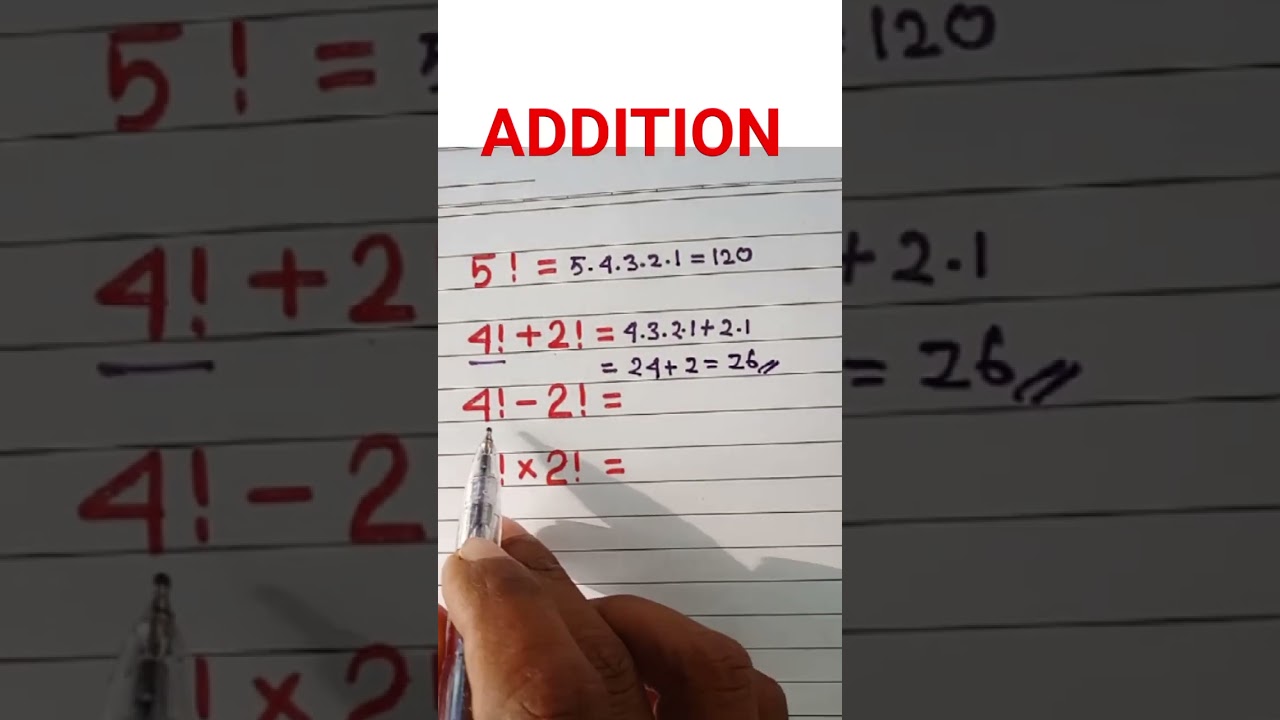 ADDITION
5! = 5.4.3.2.1 = 120
4! + 2! = 4.3.2.1 + 2.1
= 24 + 2 = 26
4! - 2! =
! × 2! =